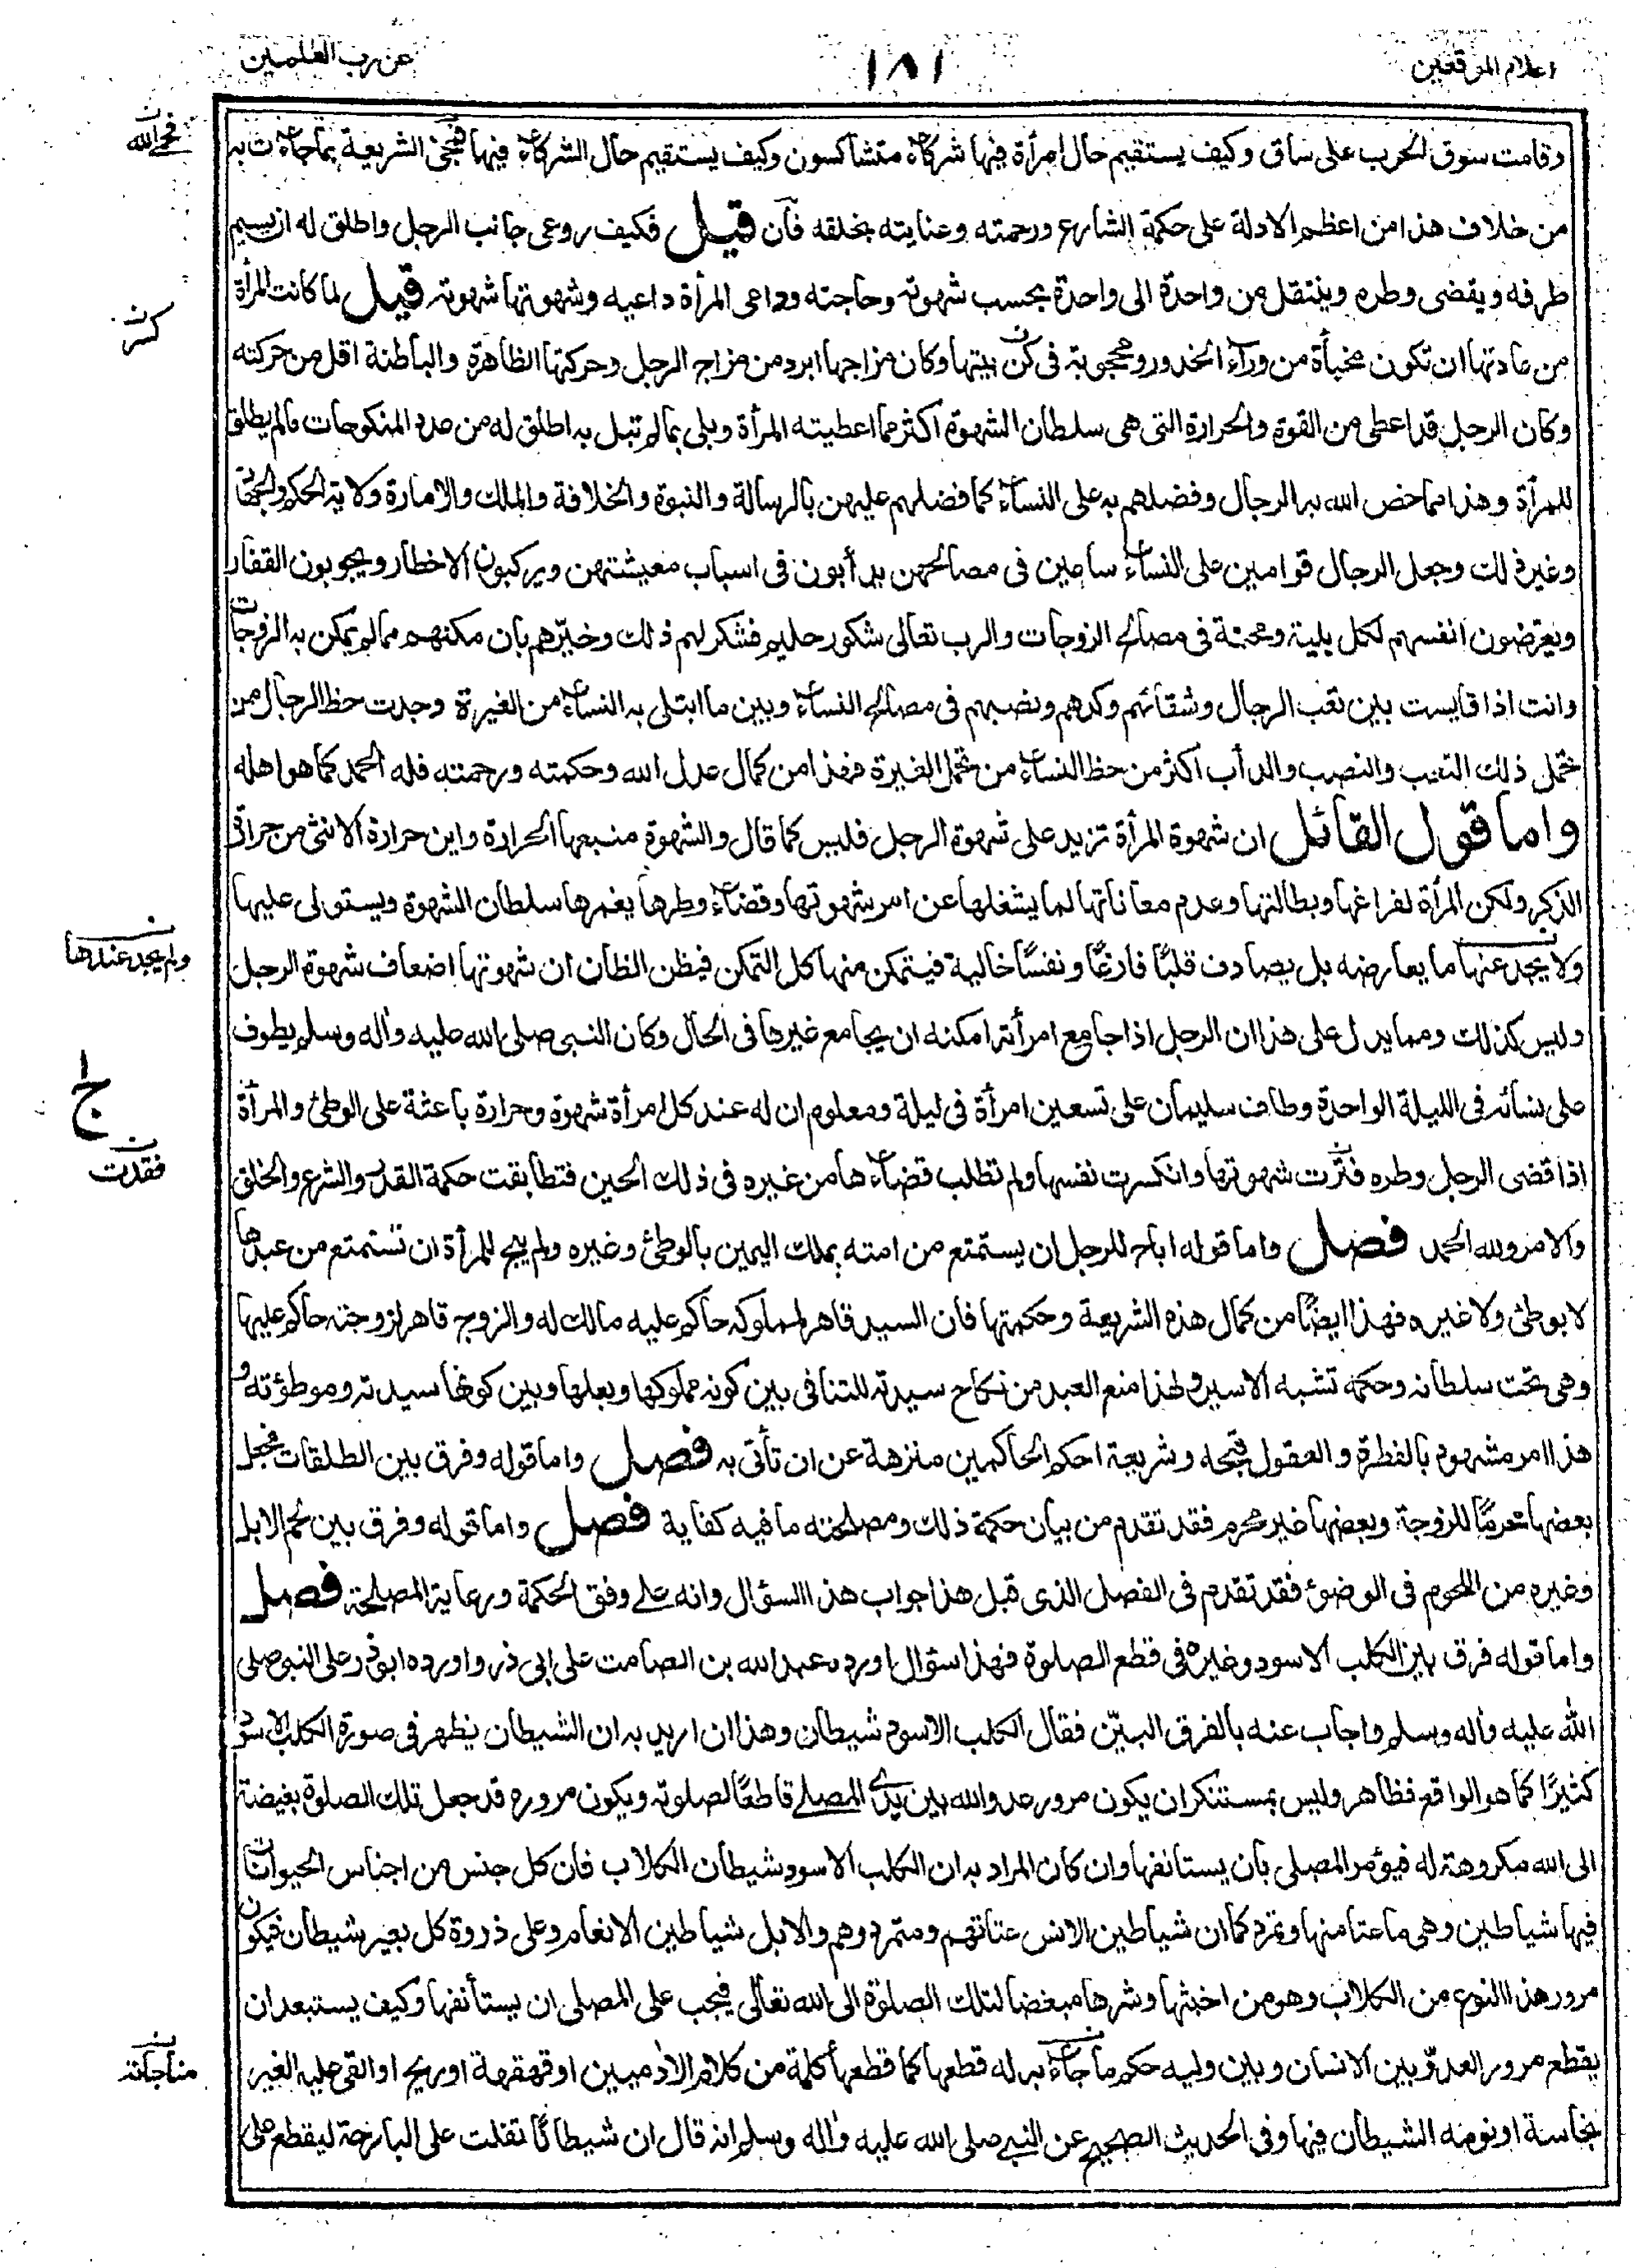 اعلام الموقعين
١٨١
عن رب العلمين
وقامت سوق الحرب على ساق وكيف يستقيم حال امرأة فيها شركاء متشاكسون وكيف يستقيم حال الشركاء فيها فمجئ الشريعة بما جاءت به
من خلاف هذا من اعظم الادلة على حكمة الشارع ورحمته وعنايته بخلقه فأن قيل فكيف روعى جانب الرجل واطلق له ان يسيم
طرفه ويقضى وطره وينتقل من واحدة الى واحدة بحسب شهوته وحاجته وداعى المرأة داعيه وشهوتها شهوته قيل لما كانت المرأة
من عادتها ان تكون مخبأة من ورآء الخدور ومحجوبة فى كن بيتها وكان مزاجها ابرد من مزاج الرجل وحركتها الظاهرة والباطنة اقل من حركته
وكان الرجل قد اعطى من القوة والحرارة التى هى سلطان الشهوة اكثر مما اعطيته المرأة وبلى بما لم تبل به اطلق له من عدد المنكوحات مالم يطلق
للمرأة وهذا مما خص الله به الرجال وفضلهم به على النساء كما فضلهم عليهن بالرسالة والنبوة والخلافة والملك والامارة وولاية الحكم والجهاد
وغير ذلك وجعل الرجال قوامين على النساء ساعين فى مصالحهن يدأبون فى اسباب معيشتهن ويركبون الاخطار ويجوبون القفار
ويعرّضون انفسهم لكل بلية ومحنة فى مصالح الزوجات والرب تعالى شكور حليم فشكر لهم ذلك وخبّرهم بان مكنهم مما لم يمكن به الزوجات
وانت اذا قايست بين تعب الرجال وشقائهم وكدهم ونصبهم فى مصالح النساء وبين ما ابتلى به النساء من الغيرة وجدت حظ الرجال من
تحمل ذلك التعب والنصب والدأب اكثر من حظ النساء من تحمل الغيرة فهذا من كمال عدل الله وحكمته ورحمته فله الحمد كما هو اهله
واما قول القائل ان شهوة المرأة تزيد على شهوة الرجل فليس كما قال والشهوة منبعها الحرارة واين حرارة الانثى من حرارة
الذكر ولكن المرأة لفراغها وبطالتها وعدم معاناتها لما يشغلها عن امر شهوتها وقضاء وطرها يغمرها سلطان الشهوة ويستولى عليها
ولا يجد عنها ما يعارضه بل يصادف قلبًا فارغًا ونفسًا خالية فيتمكن منها كل التمكن فيظن الظان ان شهوتها اضعاف شهوة الرجل
وليس كذلك ومما يدل على هذا ان الرجل اذا جامع امرأته امكنه ان يجامع غيرها فى الحال وكان النبى صلى الله عليه وأله وسلم يطوف
على نسائه فى الليلة الواحدة وطاف سليمان على تسعين امرأة فى ليلة ومعلوم ان له عند كل امرأة شهوة وحرارة باعثة على الوطئ والمرأة
اذا قضى الرجل وطره فترت شهوتها وانكسرت نفسها ولم تطلب قضاءها من غيره فى ذلك الحين فتطابقت حكمة القدر والشرع والخلق
والامر ولله الحمد فصل واما قوله اباح للرجل ان يستمتع من امته بملك اليمين بالوطئ وغيره ولم يبح للمرأة ان تستمتع من عبدها
لا بوطئ ولا غيره فهذا ايضًا من كمال هذه الشريعة وحكمتها فان السيد قاهر لمملوكه حاكم عليه مالك له والزوج قاهر لزوجته حاكم عليها
وهى تحت سلطانه وحكمه تشبه الاسير ولهذا منع العبد من نكاح سيدته للتنافى بين كونه مملوكها وبعلها وبين كونها سيدته وموطوءته و
هذا امر مشهوم بالفطرة والعقول قبحه وشريعة احكم الحاكمين منزهة عن ان تأتى به فصل واما قوله وفرق بين الطلقات فجعل
بعضها محرمًا للزوجة وبعضها غير محرم فقد تقدم من بيان حكمة ذلك ومصلحته ما فيه كفاية فصل واما قوله وفرق بين لحم الابل
وغيره من اللحوم فى الوضوء فقد تقدم فى الفصل الذى قبل هذا جواب هذا السؤال وانه على وفق الحكمة ورعاية المصلحة فصل
واما قوله فرق بين الكلب الاسود وغيره فى قطع الصلوة فهذا سؤال اورده عبد الله بن الصامت على ابى ذر واورده ابوذر على النبى صلى
الله عليه وأله وسلم واجاب عنه بالفرق البيّن فقال الكلب الاسود شيطان وهذا ان اريد به ان الشيطان يظهر فى صورة الكلب الاسود
كثيرًا كما هو الواقع فظاهر وليس بمستنكر ان يكون مرور عدو الله بين يدى المصلى قاطعًا لصلوته ويكون مروره قد جعل تلك الصلوة بغيضة
الى الله مكروهة له فيؤمر المصلى بان يستانفها وان كان المراد به ان الكلب الاسود شيطان الكلاب فان كل جنس من اجناس الحيوانات
فيها شياطين وهى ما عتا منها وتمرد كما ان شياطين الانس عتاتهم ومتمردوهم والابل شياطين الانعام وعلى ذروة كل بعير شيطان فيكون
مرور هذا النوع من الكلاب وهو من اخبثها وشرها مبغضا لتلك الصلوة الى الله تعالى فيجب على المصلى ان يستأنفها وكيف يستبعد ان
يقطع مرور العدوّ بين الانسان وبين وليه حكم ما جاء به له قطعها كما قطعها كلمة من كلام الادميين او قهقهة او ريح او القى عليه الغير
نجاسة او نومه الشيطان فيها وفى الحديث الصحيح عن النبى صلى الله عليه وأله وسلم انه قال ان شيطانًا تفلت على البارحة ليقطع على
فمجئ الله
كسر
ولم يجد عندها
ج ١
فقدت
مناجاته